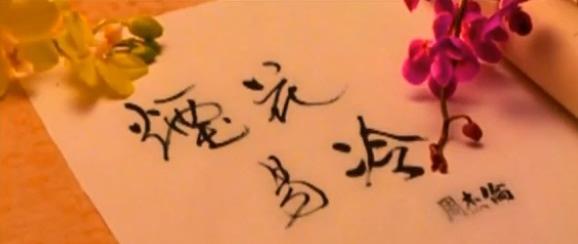 煙花
易冷
周杰倫